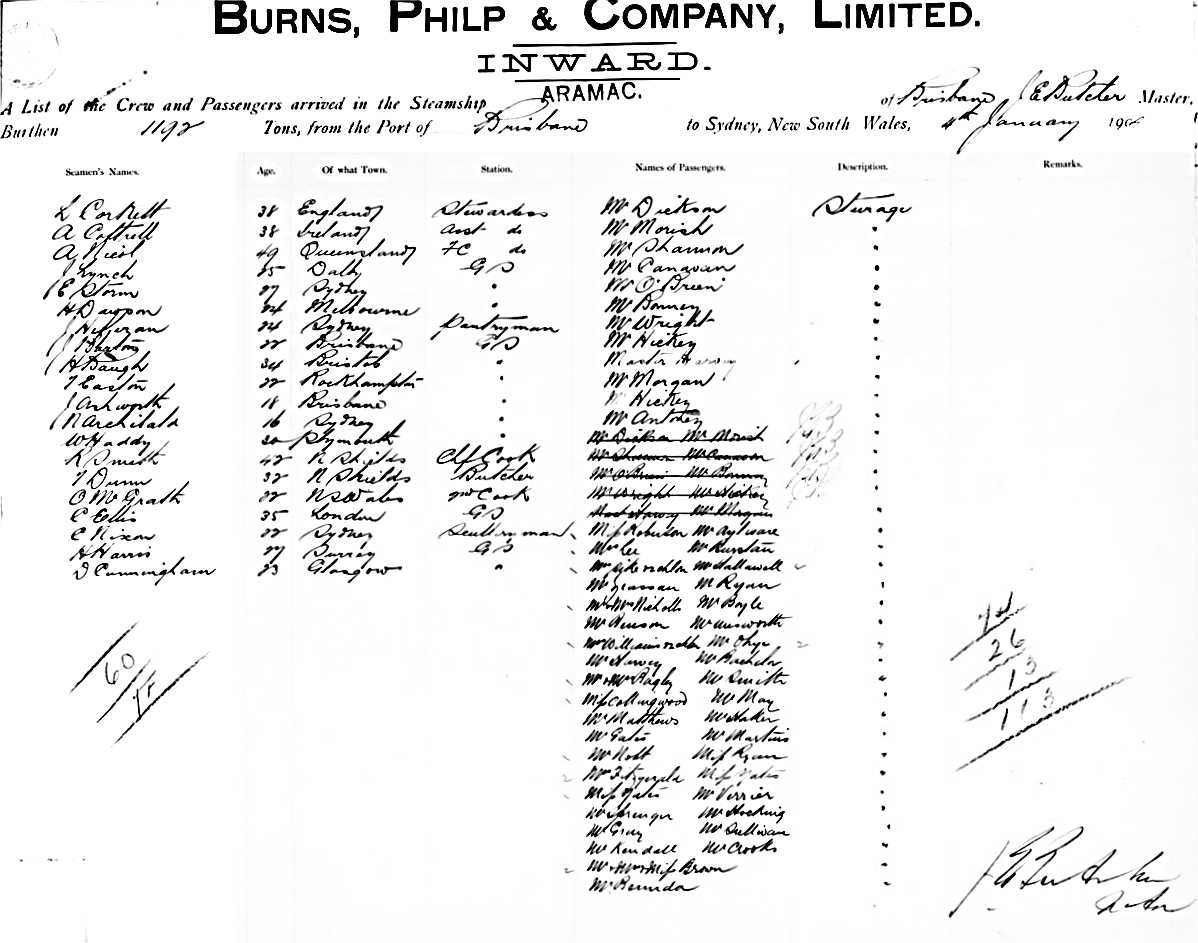 BURNS, PHILP & COMPANY, LIMITED.
INWARD.
ARAMAC.
A List of the Crew and Passengers arrived in the Steamship of Brisbane J E Butcher Master,
Burthen 1192 Tons, from the Port of Brisbane to Sydney, New South Wales, 4th January 190
Seamen's Names. Age. Of what Town. Station. Names of Passengers. Description. Remarks.
L Corkett 38 England Stewardess Mr Dickson Steerage
A Cottrell 38 Ireland Asst do Mr Morish "
A Nicol 49 Queensland FC do Mr Shannon "
J Lynch 25 Dalby GS Mr Canavan "
E Storm 27 Sydney " Mr O'Brien "
H Dawson 24 Melbourne " Mr Bonney "
J 24 Sydney Pantryman Mr Wright "
J Barton 22 Brisbane GS Mr Hickey "
H Baugh 34 Bristol " Master Harvey "
T Easton 22 Rockhampton " Mr Morgan "
J Ashworth 18 Brisbane " Hickey "
N Archibald 16 Sydney " Mr Antohey "
W Haddy 20 Plymouth " Mr Dickson Mr Morish
R Smith 42 N Shields Chf Cook Mr Shannon Mr Canavan
T Dunn 32 N Shields Butcher Mr O'Brien Mr Bonney
O McGrath 22 N S Wales 2nd Cook Mr Wright Mr Hickey
C Ellis 35 London GS Mast Harvey Mr Morgan
C Nixon 22 Sydney Sculleryman Miss Roberson Mr Aylward "
H Harris 27 Surrey GS Mr Lee "
D Cunningham 23 Glasgow " Mr Hallawell "
Mr Grassan Mr Ryan "
Mr & Mrs Nicholls Mr Boyle "
Mr Henson "
60 Mr Williams "
Mr Harvey Mr Bachelor "
Mr & Mrs Bagley Mr Smith "
Miss Collingwood Mr May "
Mr Matthews Mr Haker "
Mr Gates Mr Martins "
Mr Nott Miss Ryan "
Mr Fitzgerald Miss Yates "
Miss Yates Mr Verrier "
Mr Springer Mr Hocking "
Mr Gray Mr Sullivan "
Mr Kendall Mr Crooks "
Mr & Mrs & Miss Brown "
Mr "
26
13
113
J E Butcher